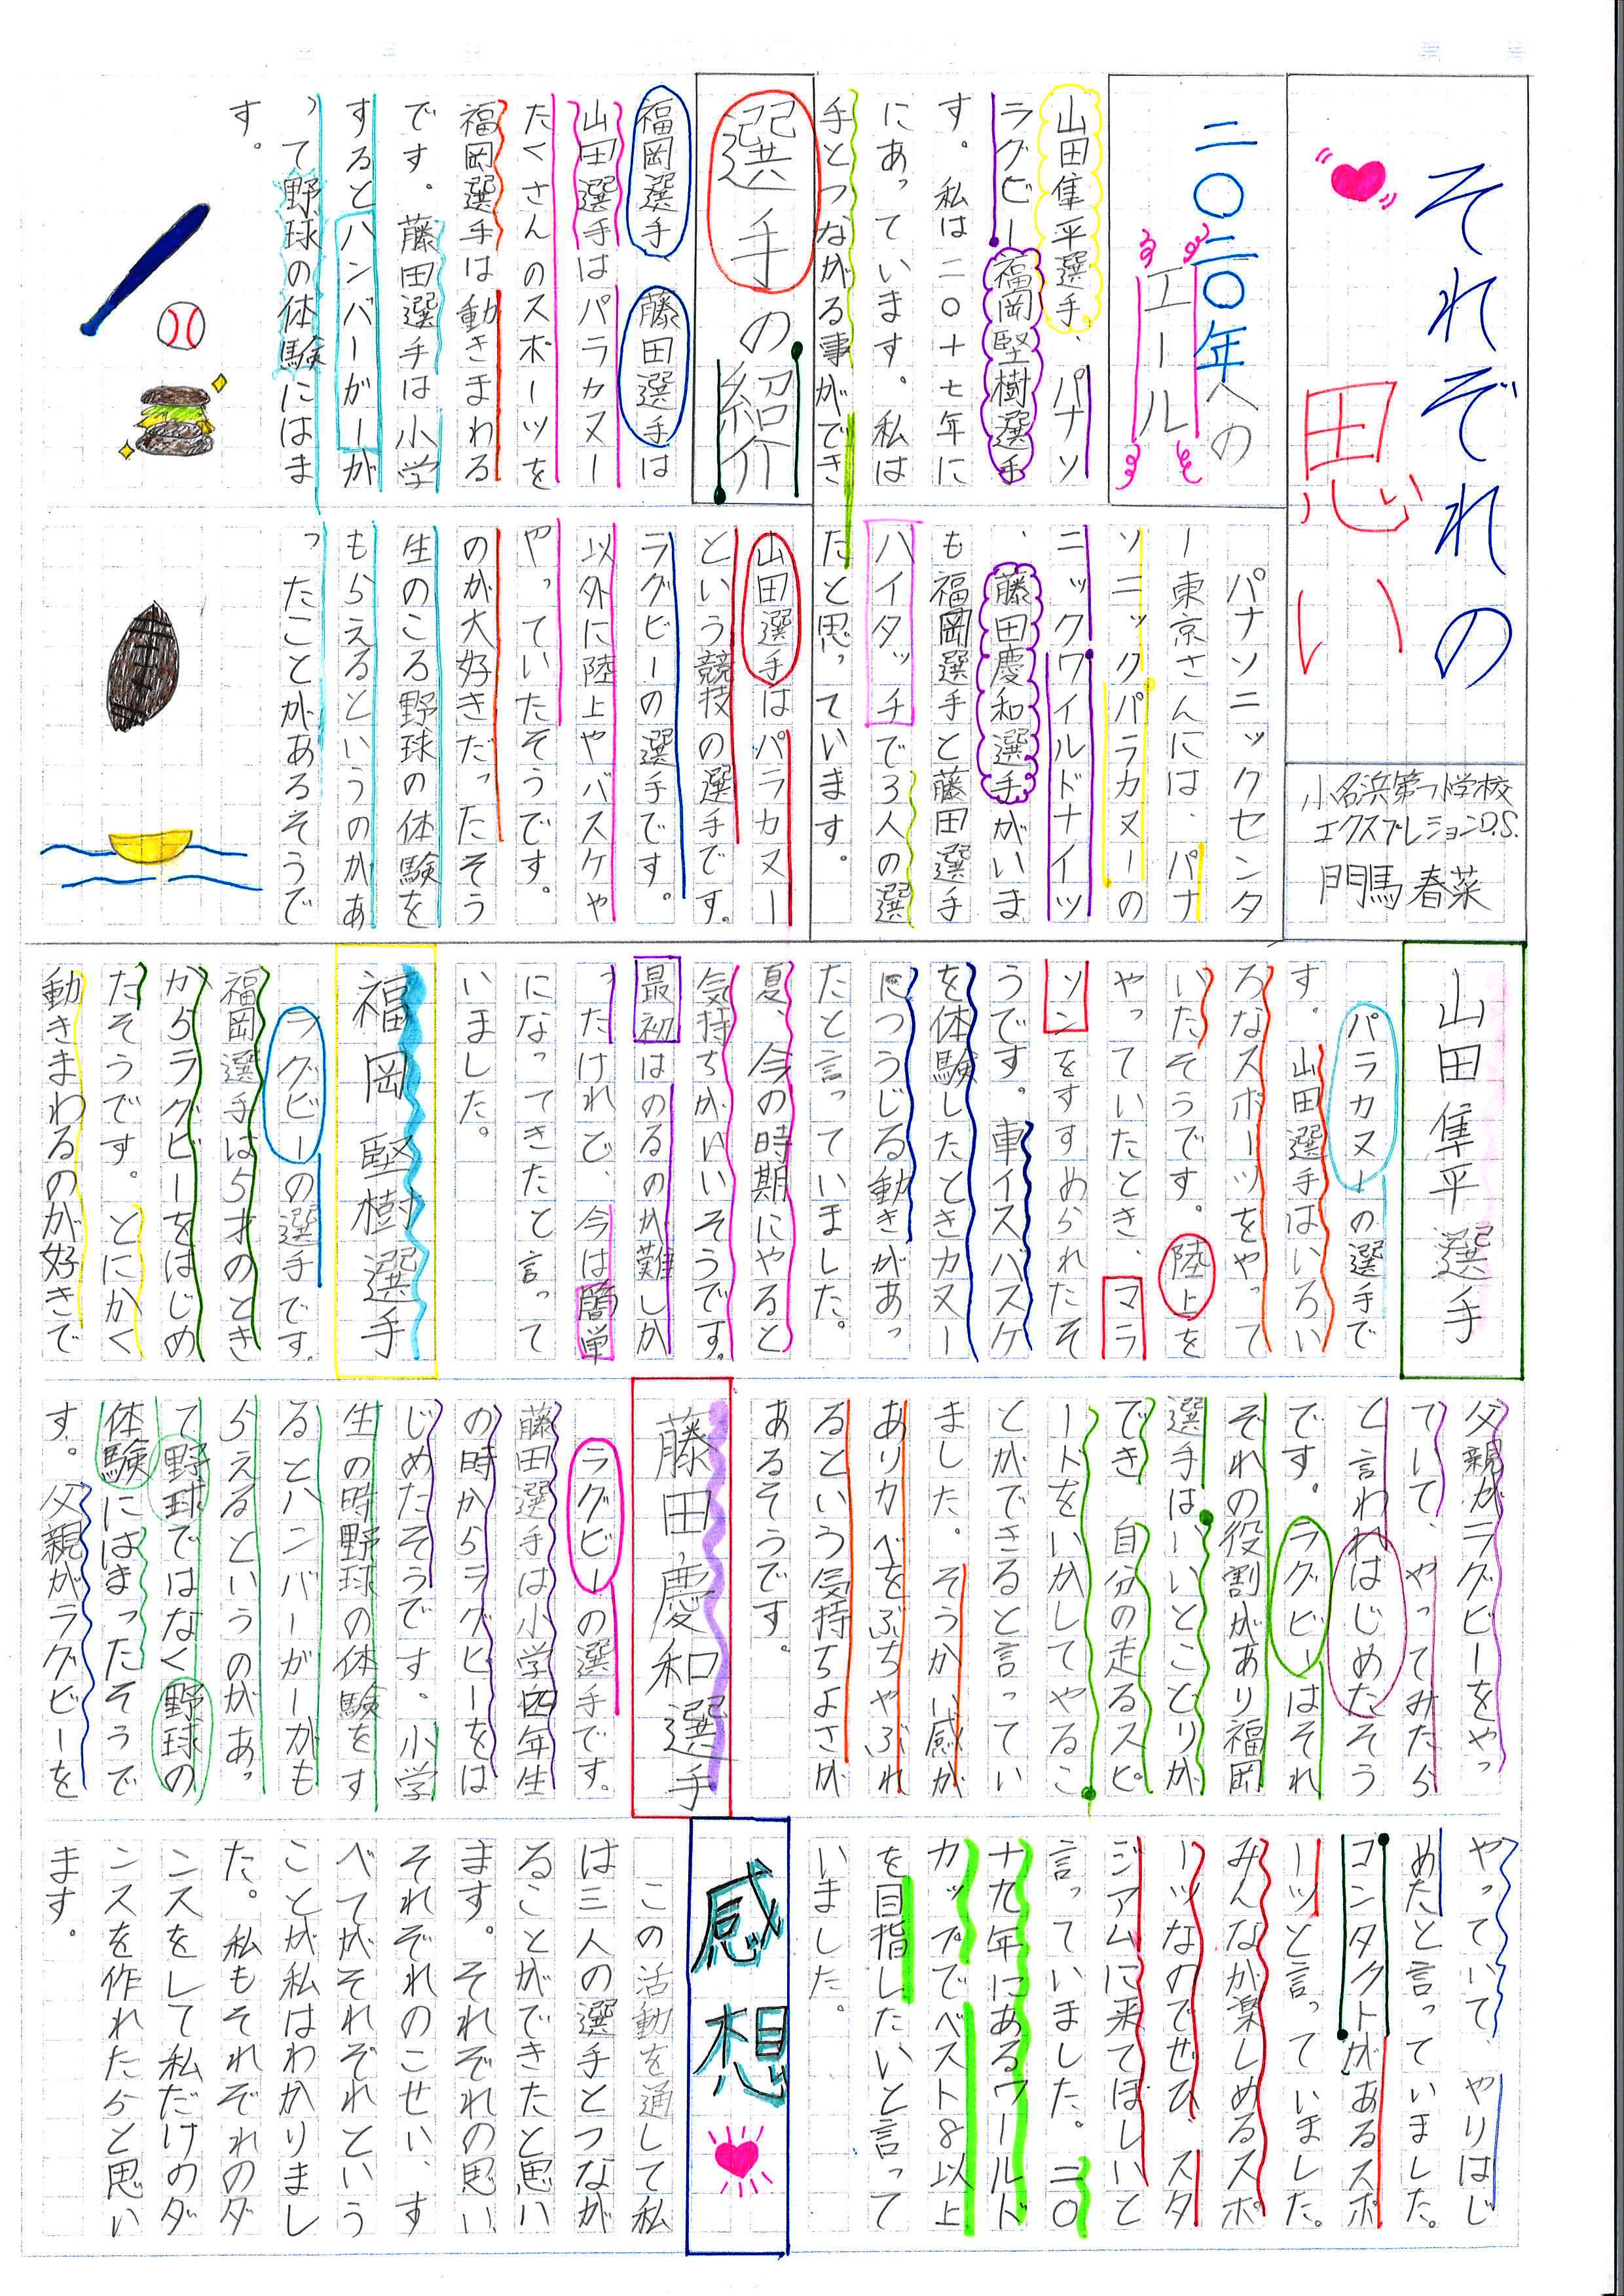 それぞれの
思い
小名浜第一小学校
エクスプレションD.S.
門馬春菜
二〇二〇年への
エール
パナソニックセンタ
ー東京さんには、パナ
ソニックパラカヌーの
山田隼平選手、パナソ
ニックワイルドナイツ
ラグビー福岡堅樹選手
、藤田慶和選手がいま
す。私は二〇十七年に
も福岡選手と藤田選手
にあっています。私は
ハイタッチで3人の選
手とつながる事ができ
たと思っています。
選手の紹介
山田選手はパラカヌー
という競技の選手です。
福岡選手 藤田選手は
ラグビーの選手です。
山田選手はパラカヌー
以外に陸上やバスケや
たくさんのスポーツを
やっていたそうです。
福岡選手は動きまわる
のが大好きだったそう
です。藤田選手は小学
生のころ野球の体験を
するとハンバーガーが
もらえるというのがあ
って野球の体験にはま
ったことがあるそうで
す。
山田隼平選手
パラカヌーの選手で
す。山田選手はいろい
ろなスポーツをやって
いたそうです。陸上を
やっていたとき、マラ
ソンをすすめられたそ
うです。車イスバスケ
を体験したときカヌー
につうじる動きがあっ
たと言っていました。
夏、今の時期にやると
気持ちがいいそうです。
最初はのるのが難しか
ったけれど、今は簡単
になってきたと言って
いました。
福岡堅樹選手
ラグビーの選手です。
福岡選手は5才のとき
からラグビーをはじめ
たそうです。とにかく
動きまわるのが好きで
父親がラグビーをやっ
ていて、やってみたら
と言われはじめたそう
です。ラグビーはそれ
ぞれの役割があり福岡
選手はいいとこどりが
でき 自分の走るスピ
ードをいかしてやるこ
とができると言ってい
ました。そうかい感が
ありカベをぶちやぶれ
るという気持ちよさが
あるそうです。
藤田慶和選手
ラグビーの選手です。
藤田選手は小学四年生
の時からラグビーをは
じめたそうです。小学
生の時野球の体験をす
るとハンバーガーがも
らえるというのがあっ
て野球ではなく野球の
体験にはまったそうで
す。父親がラグビーを
やっていて、やりはじ
めたと言っていました。
コンタクトがあるスポ
ーツと言っていました。
みんなが楽しめるスポ
ーツなのでぜひ、スタ
ジアムに来てほしいと
言っていました。二〇
十九年にあるワールド
カップでベスト8以上
を目指したいと言って
いました。
感想
この活動を通して私
は三人の選手とつなが
ることができたと思い
ます。それぞれの思い
それぞれのこせい、す
べてがそれぞれという
ことが私はわかりまし
た。私もそれぞれのダ
ンスをして私だけのダ
ンスを作れたらと思い
ます。